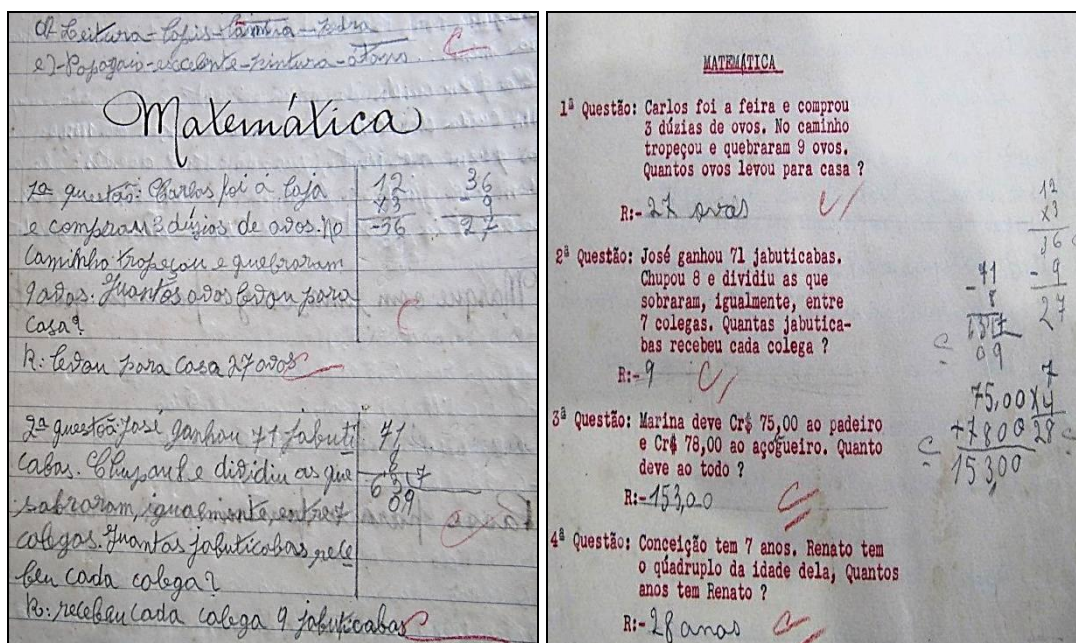 d) Leitura - lápis - - pedra
e) - Papagaio - excelente - pintura - C
Matemática
1ª questão: Carlos foi á loja
e comprou 3 dúzias de ovos. No
caminho tropeçou e quebraram
9 ovos. Quantos ovos levou para
casa?
12 36
x3 - 9
-36 27
C
R: levou para casa 27 ovos C
2ª questão José ganhou 71 jabuti
cabas. Chupou 8 e dividiu as que
sobraram, igualmente, entre 7
colegas. Quantas jabuticabas, rece
beu cada colega?
71
- 8
63 7
09
C
R: recebeu cada colega 9 jabuticabas C
MATEMÁTICA
1ª Questão: Carlos foi a feira e comprou
3 dúzias de ovos. No caminho
tropeçou e quebraram 9 ovos.
Quantos ovos levou para casa ?
R:- 27 ovos C
12
x3
36 C
- 9
27
2ª Questão: José ganhou 71 jabuticabas.
Chupou 8 e dividiu as que
sobraram, igualmente, entre
7 colegas. Quantas jabutica-
bas recebeu cada colega ?
R:- 9 C
71
- 8
63 7
C 09
3ª Questão: Marina deve Cr$ 75,00 ao padeiro
e Cr$ 78,00 ao açogueiro. Quanto
deve ao todo ?
R:- 153,00 C
75,00
+7800
C 153,00
7
x4
28 C
4ª Questão: Conceição tem 7 anos. Renato tem
o quádruplo da idade dela, Quantos
anos tem Renato ?
R:- 28 anos C